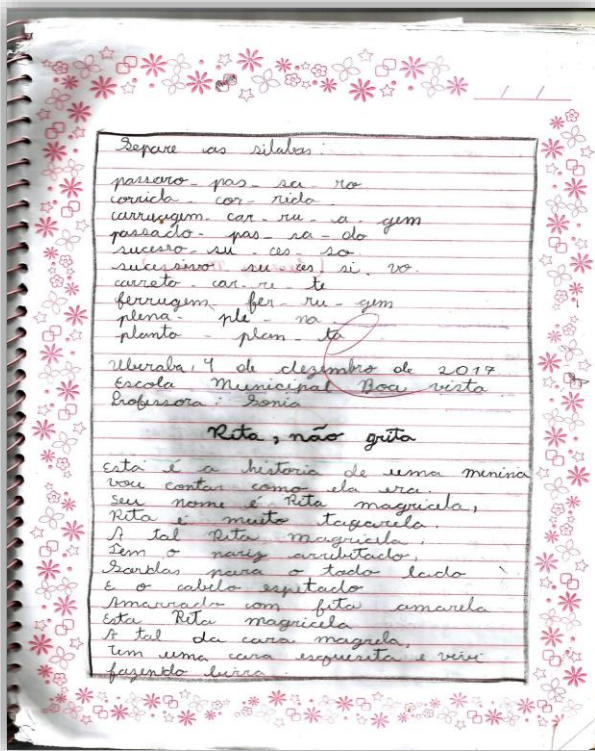 Separe as silabas:
passaro - pas - sa - ro
corrida - cor - rida
carruagem - car - ru - a - gem
passado - pas - sa - do
sucesso - su - ces - so
sucessivo su ces si - vo
carreto - car - re - te
ferrugem - fer - ru - gem
plena - ple - na
planta - plan - ta
Uberaba, 4 de dezembro de 2017
Escola Municipal Boa vista
Professora: Sonia
Rita, não grita
Esta é a historia de uma menina
vou contar como ela era
Seu nome é Rita magricela,
Rita é muito tagarela.
A tal Rita magricela,
Tem o nariz arribitado,
Sardas para o todo lado
E o cabelo espetado
Amarrado com fita amarela
Esta Rita magricela
A tal da cara magrela,
Tem uma cara esquisita e vive
fazendo birra.